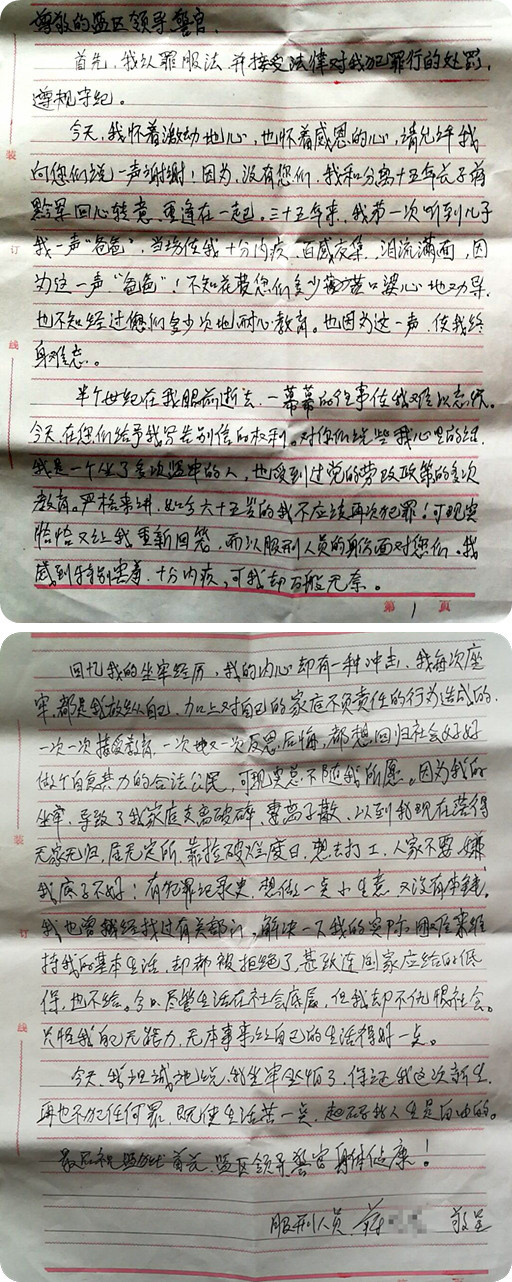 尊敬的监区领导警官:
首先,我认罪服法,并接受法律对我犯罪行的处罚,
遵规守纪。
今天,我怀着激动地心,也怀着感恩的心,请允许我
向您们说一声谢谢!因为,没有您们,我和分离十五年长子蒋
黔军回心转意,重逢在一起。三十五年来,我第一次听到儿子
我一声“爸爸”,当场使我十分内疚,百感交集,泪流满面,因
为这一声“爸爸”!不知花费您们多少苦口婆心地劝导,
也不知经过您们多少次地耐心教育。也因为这一声,使我终
身难忘。
半个世纪在我眼前逝去,一幕幕的往事使我难以忘怀。
今天,在您们给予我写告别信的权利。对你们说些我心里的话,
我是一个坐了多次监牢的人,也受到过党的劳改政策的多次
教育。严格来讲,如今六十五岁的我不应该再次犯罪!可现实
恰恰又让我重新回笼,而以服刑人员的身份面对您们。我
感到特别害羞,十分内疚,可我却万般无奈。
第 1 页
回忆我的坐牢经历,我的内心却有一种冲击,我每次座
牢,都是我放纵自己,加上对自己的家庭不负责任的行为造成的。
一次一次接受教育,一次地又一次反思后悔,都想回归社会好好
做个自食其力的合法公民,可现实总不随我所愿。因为我的
坐牢,导致了我家庭支离破碎,妻离子散,以到我现在落得
无家无归,居无定所,靠捡破烂度日,想去打工,人家不要,嫌
我底子不好!有犯罪记录史,想做一点小生意,又没有本钱。
我也曾经找过有关部门,解决一下我的实际困难来维
持我的基本生活,却都被拒绝了,甚致连国家应给的低
保,也不给。今日尽管生活在社会底层,但我却不仇恨社会。
只怪我自己无能力,无本事来让自己的生活得好一点。
今天,我坦诚地说,我坐牢坐怕了,保证我这次新生,
再也不犯任何罪,既使生活苦一点,起码我人生是自由的。
最后祝监狱首先,监区领导警官身体健康!
服刑人员 蒋 敬呈
装
订
线
装
订
线